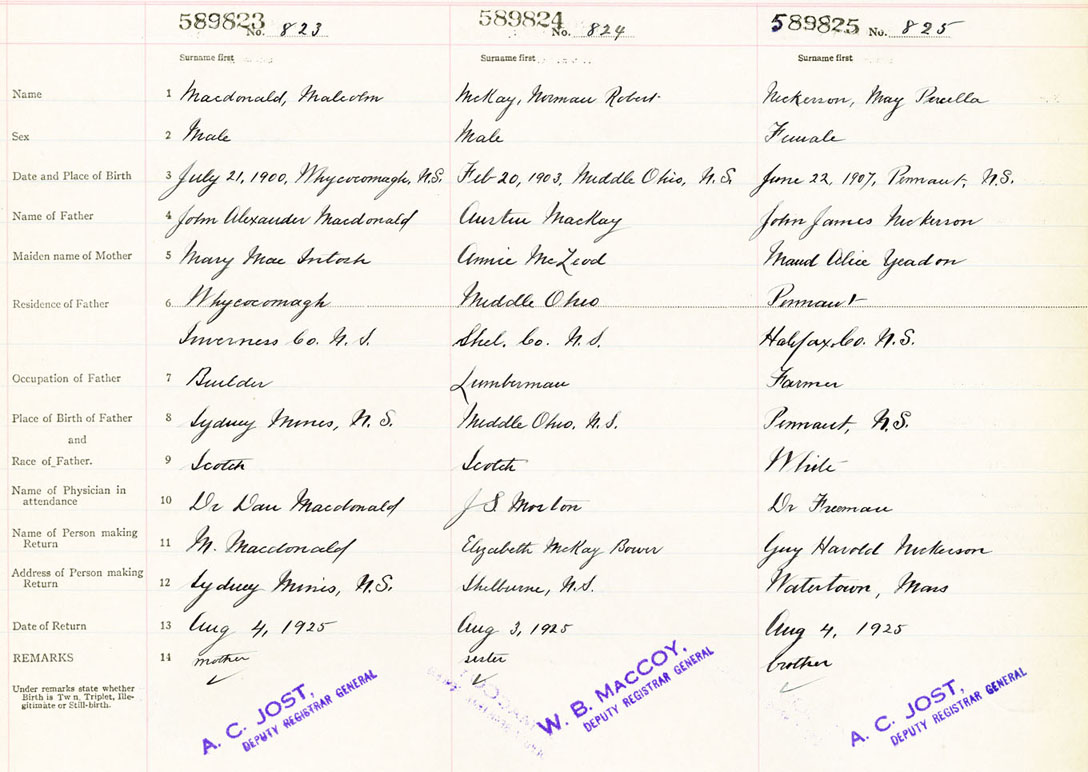 589823 No. 823 589824 No. 824 589825 No. 825
Surname first Surname first Surname first
Name 1 Macdonald, Malcolm McKay, Norman Robert Nickerson, May Percella
Sex 2 Male Male Female
Date and Place of Birth 3 July 21, 1900, Whycocomagh, N.S. Feb 20, 1903, Middle Ohio, N.S. June 22, 1907, Pennant, N.S.
Name of Father 4 John Alexander Macdonald Austin MacKay John James Nickerson
Maiden name of Mother 5 Mary Mac Intosh Annie McLeod Maud Alice Yeadon
Residence of Father 6 Whycocomagh Middle Ohio Pennant
Inverness Co. N.S. Shel. Co. N.S. Halifax Co. N.S.
Occupation of Father 7 Builder Lumberman Farmer
Place of Birth of Father 8 Sydney Mines, N.S. Middle Ohio, N.S. Pennant, N.S.
and
Race of Father. 9 Scotch Scotch White
Name of Physician in
attendance 10 Dr Dan Macdonald J S Morton Dr Freeman
Name of Person making
Return 11 M. Macdonald Elizabeth McKay Bower Guy Harold Nickerson
Address of Person making
Return 12 Sydney Mines, N.S. Shelburne, N.S. Watertown, Mass
Date of Return 13 Aug 4, 1925 Aug 3, 1925 Aug 4, 1925
REMARKS 14 mother sister brother
Under remarks state whether
Birth is Twin, Triplet, Ille-
gitimate or Still-birth.
A. C. JOST,
DEPUTY REGISTRAR GENERAL
W. B. MACCOY,
DEPUTY REGISTRAR GENERAL
A. C. JOST,
DEPUTY REGISTRAR GENERAL